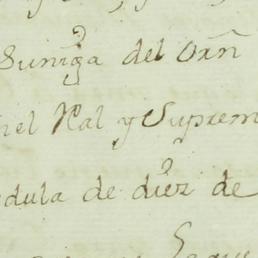 Suniga del Orñ
nel Ral y Suprem
edula de diez de